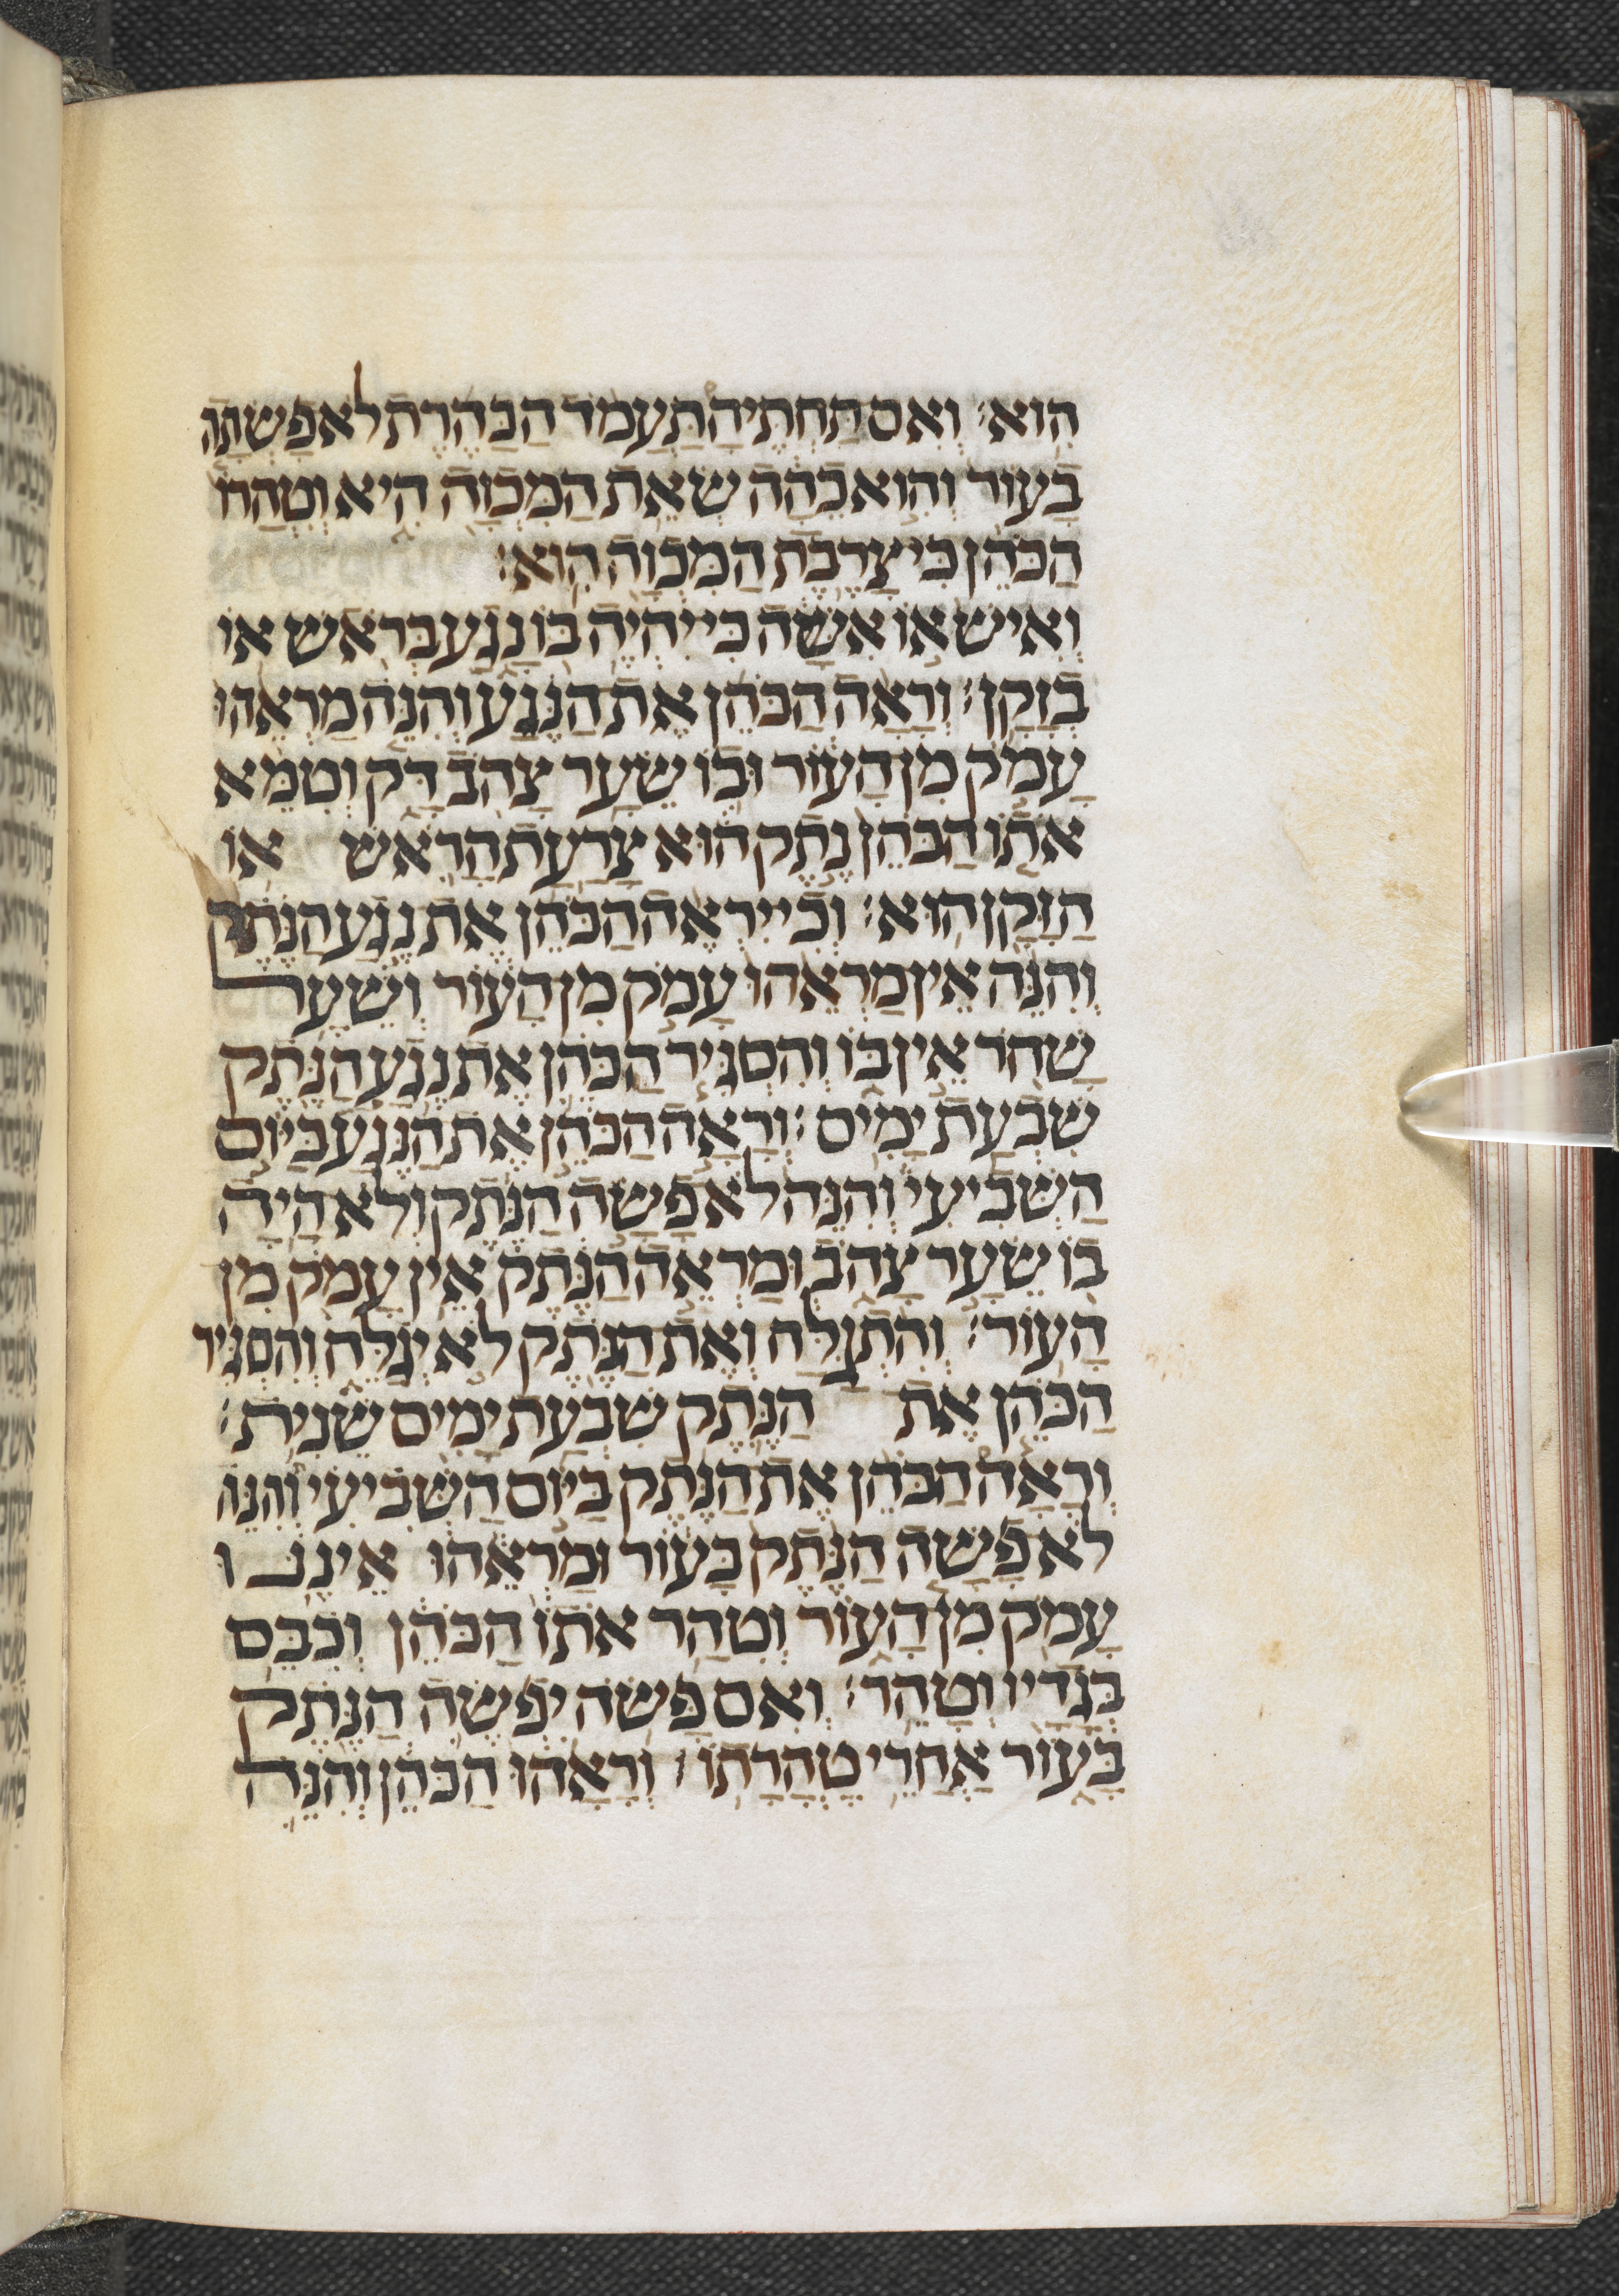 הִוא׃ וְאִם תַּחְתֶּיהָ תַעֲמֹד הַבַּהֶרֶת לֹא פָשְׂתָה
בָעוֹר וְהִוא כֵהָה שְׂאֵת הַמִּכְוָה הִיא וְטִהֲרוֹ
הַכֹּהֵן כִּי צָרֶבֶת הַמִּכְוָה הִוא׃
וְאִישׁ אוֹ אִשָּׁה כִּי יִהְיֶה בוֹ נָגַע בְּרֹאשׁ אוֹ
בְזָקָן׃ וְרָאָה הַכֹּהֵן אֶת הַנֶּגַע וְהִנֵּה מַרְאֵהוּ
עָמֹק מִן הָעוֹר וּבוֹ שֵׂעָר צָהֹב דָּק וְטִמֵּא
אֹתוֹ הַכֹּהֵן נֶתֶק הוּא צָרַעַת הָרֹאשׁ אוֹ
הַזָּקָן הוּא׃ וְכִי יִרְאֶה הַכֹּהֵן אֶת נֶגַע הַנֶּתֶק
וְהִנֵּה אֵין מַרְאֵהוּ עָמֹק מִן הָעוֹר וְשֵׂעָר
שָׁחֹר אֵין בּוֹ וְהִסְגִּיר הַכֹּהֵן אֶת נֶגַע הַנֶּתֶק
שִׁבְעַת יָמִים׃ וְרָאָה הַכֹּהֵן אֶת הַנֶּגַע בַּיּוֹם
הַשְּׁבִיעִי וְהִנֵּה לֹא פָשָׂה הַנֶּתֶק וְלֹא הָיָה
בוֹ שֵׂעָר צָהֹב וּמַרְאֵה הַנֶּתֶק אֵין עָמֹק מִן
הָעוֹר׃ וְהִתְגַּלָּח וְאֶת הַנֶּתֶק לֹא יְגַלֵּחַ וְהִסְגִּיר
הַכֹּהֵן אֶת הַנֶּתֶק שִׁבְעַת יָמִים שֵׁנִית׃
וְרָאָה הַכֹּהֵן אֶת הַנֶּתֶק בַּיּוֹם הַשְּׁבִיעִי וְהִנֵּה
לֹא פָשָׂה הַנֶּתֶק בָּעוֹר וּמַרְאֵהוּ אֵינֶנּוּ
עָמֹק מִן הָעוֹר וְטִהַר אֹתוֹ הַכֹּהֵן וְכִבֶּס
בְּגָדָיו וְטָהֵר׃ וְאִם פָּשֹׂה יִפְשֶׂה הַנֶּתֶק
בָּעוֹר אַחֲרֵי טָהֳרָתוֹ׃ וְרָאָהוּ הַכֹּהֵן וְהִנֵּה